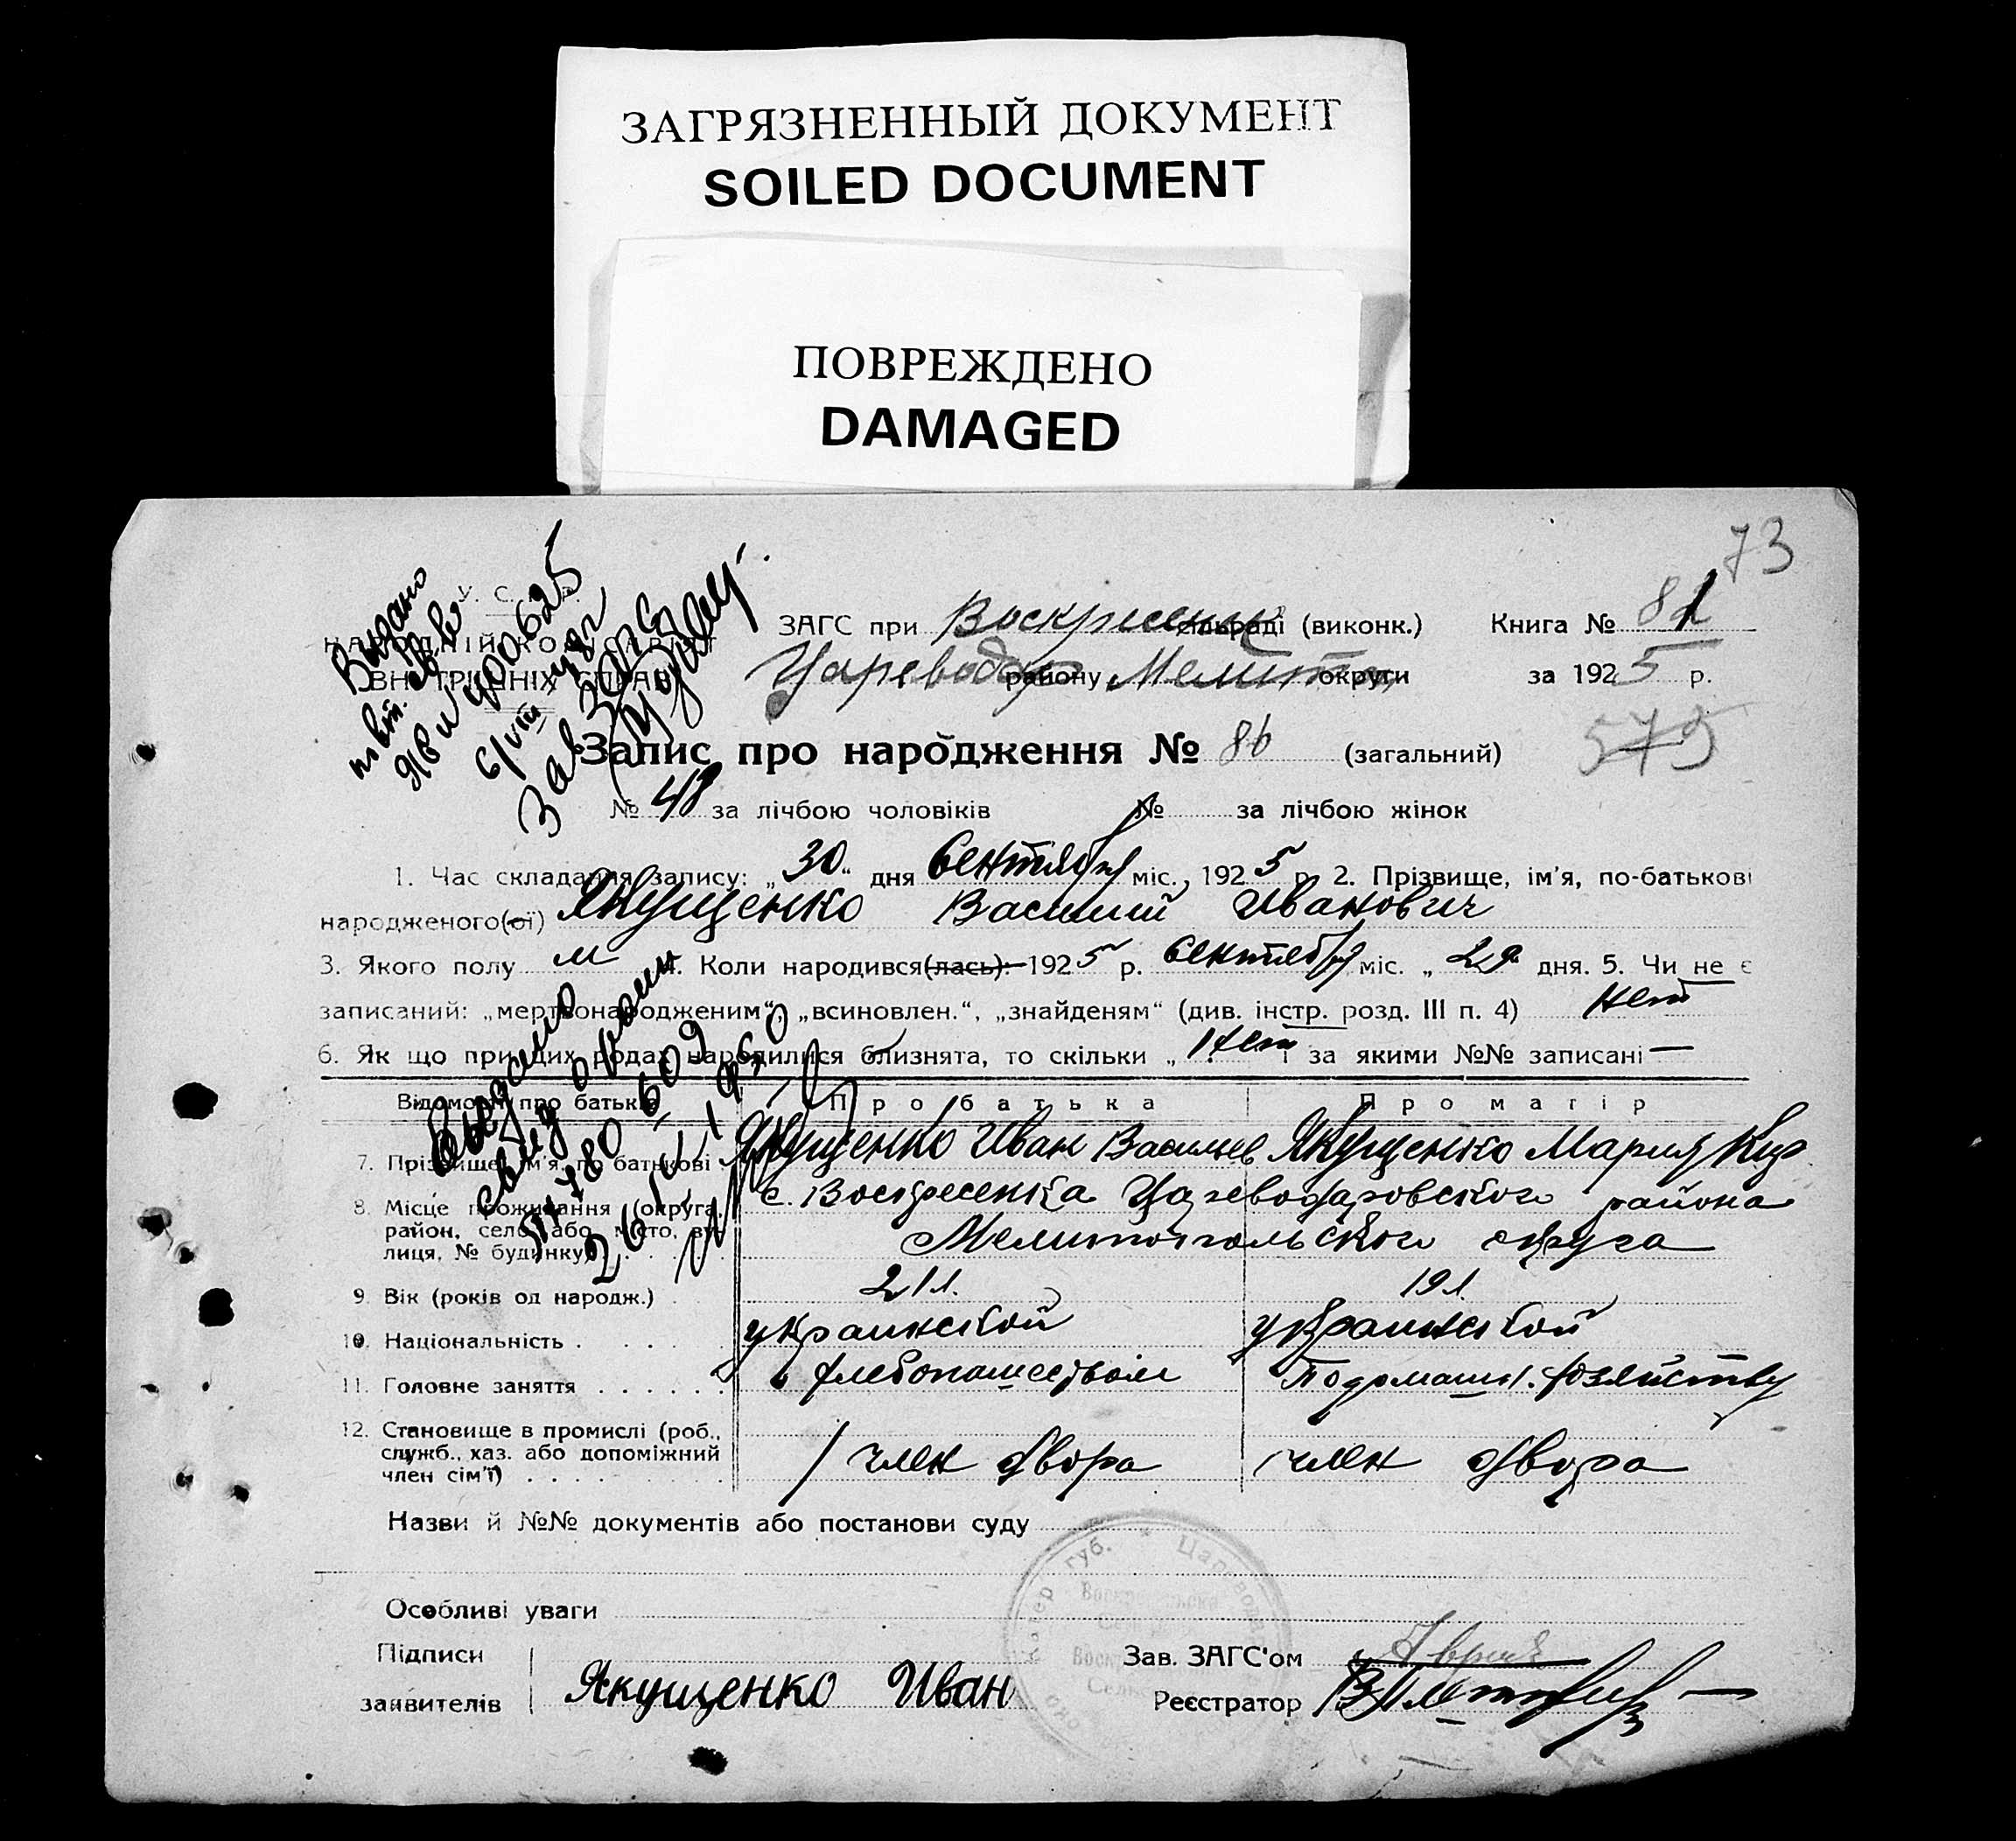 ЗАГРЯЗНЕННЫЙ ДОКУМЕНТ
SOILED DOCUMENT
ПОВРЕЖДЕНО
DAMAGED
73
У. С.
НАРОДНІЙ КОМІСАРІЯТ
ВНУТРІШНІХ СПРАВ
Выдано
ЗАГС при Воскресенк сільраді (виконк.) Книга № 81
району Мелитоп округи за 1925 р.
Запис про народження № 86 (загальний) 575
№ 48 за лічбою чоловіків № за лічбою жінок
1. Час складання запису: „30" дня Сентября міс., 1925 р. 2. Прізвище, ім'я, по-батькові
народженого(ої) Якущенко Василий Иванович
3. Якого полу м 4. Коли народився(лась): 1925 р. Сентября міс. „29 дня. 5. Чи не є
записаний: „мертвонародженим“, „всиновлен.“, „знайденям“ (див. інстр. розд. III п. 4) Нет
6. Як що при цих родах народилися близнята, то скільки „Нет і за якими №№ записані —
Відомости про батьків Про батька Про матір
7. Прізвище, ім'я, по батькові Якущенко Иван Васильев Якущенко Мария
8. Місце проживання (округа, с. Воскресенка Цареводаровского района
район, село або місто, ву- Мелитопольского округа
лиця, № будинку)
9. Вік (років од народж.) 21 л. 19 л.
10. Національність украинской украинской
11. Головне заняття хлебопашеством По домашн. хозяйству
12. Становище в промислі (роб.,
служб., хаз. або допоміжний член двора член двора
член сім'ї)
Выдано
свид о рожд
26 1950
Назви й №№ документів або постанови суду
Особливі уваги
Підписи Зав. ЗАГС'ом
заявителів Якущенко Иван Реєстратор
губ. * Царевода